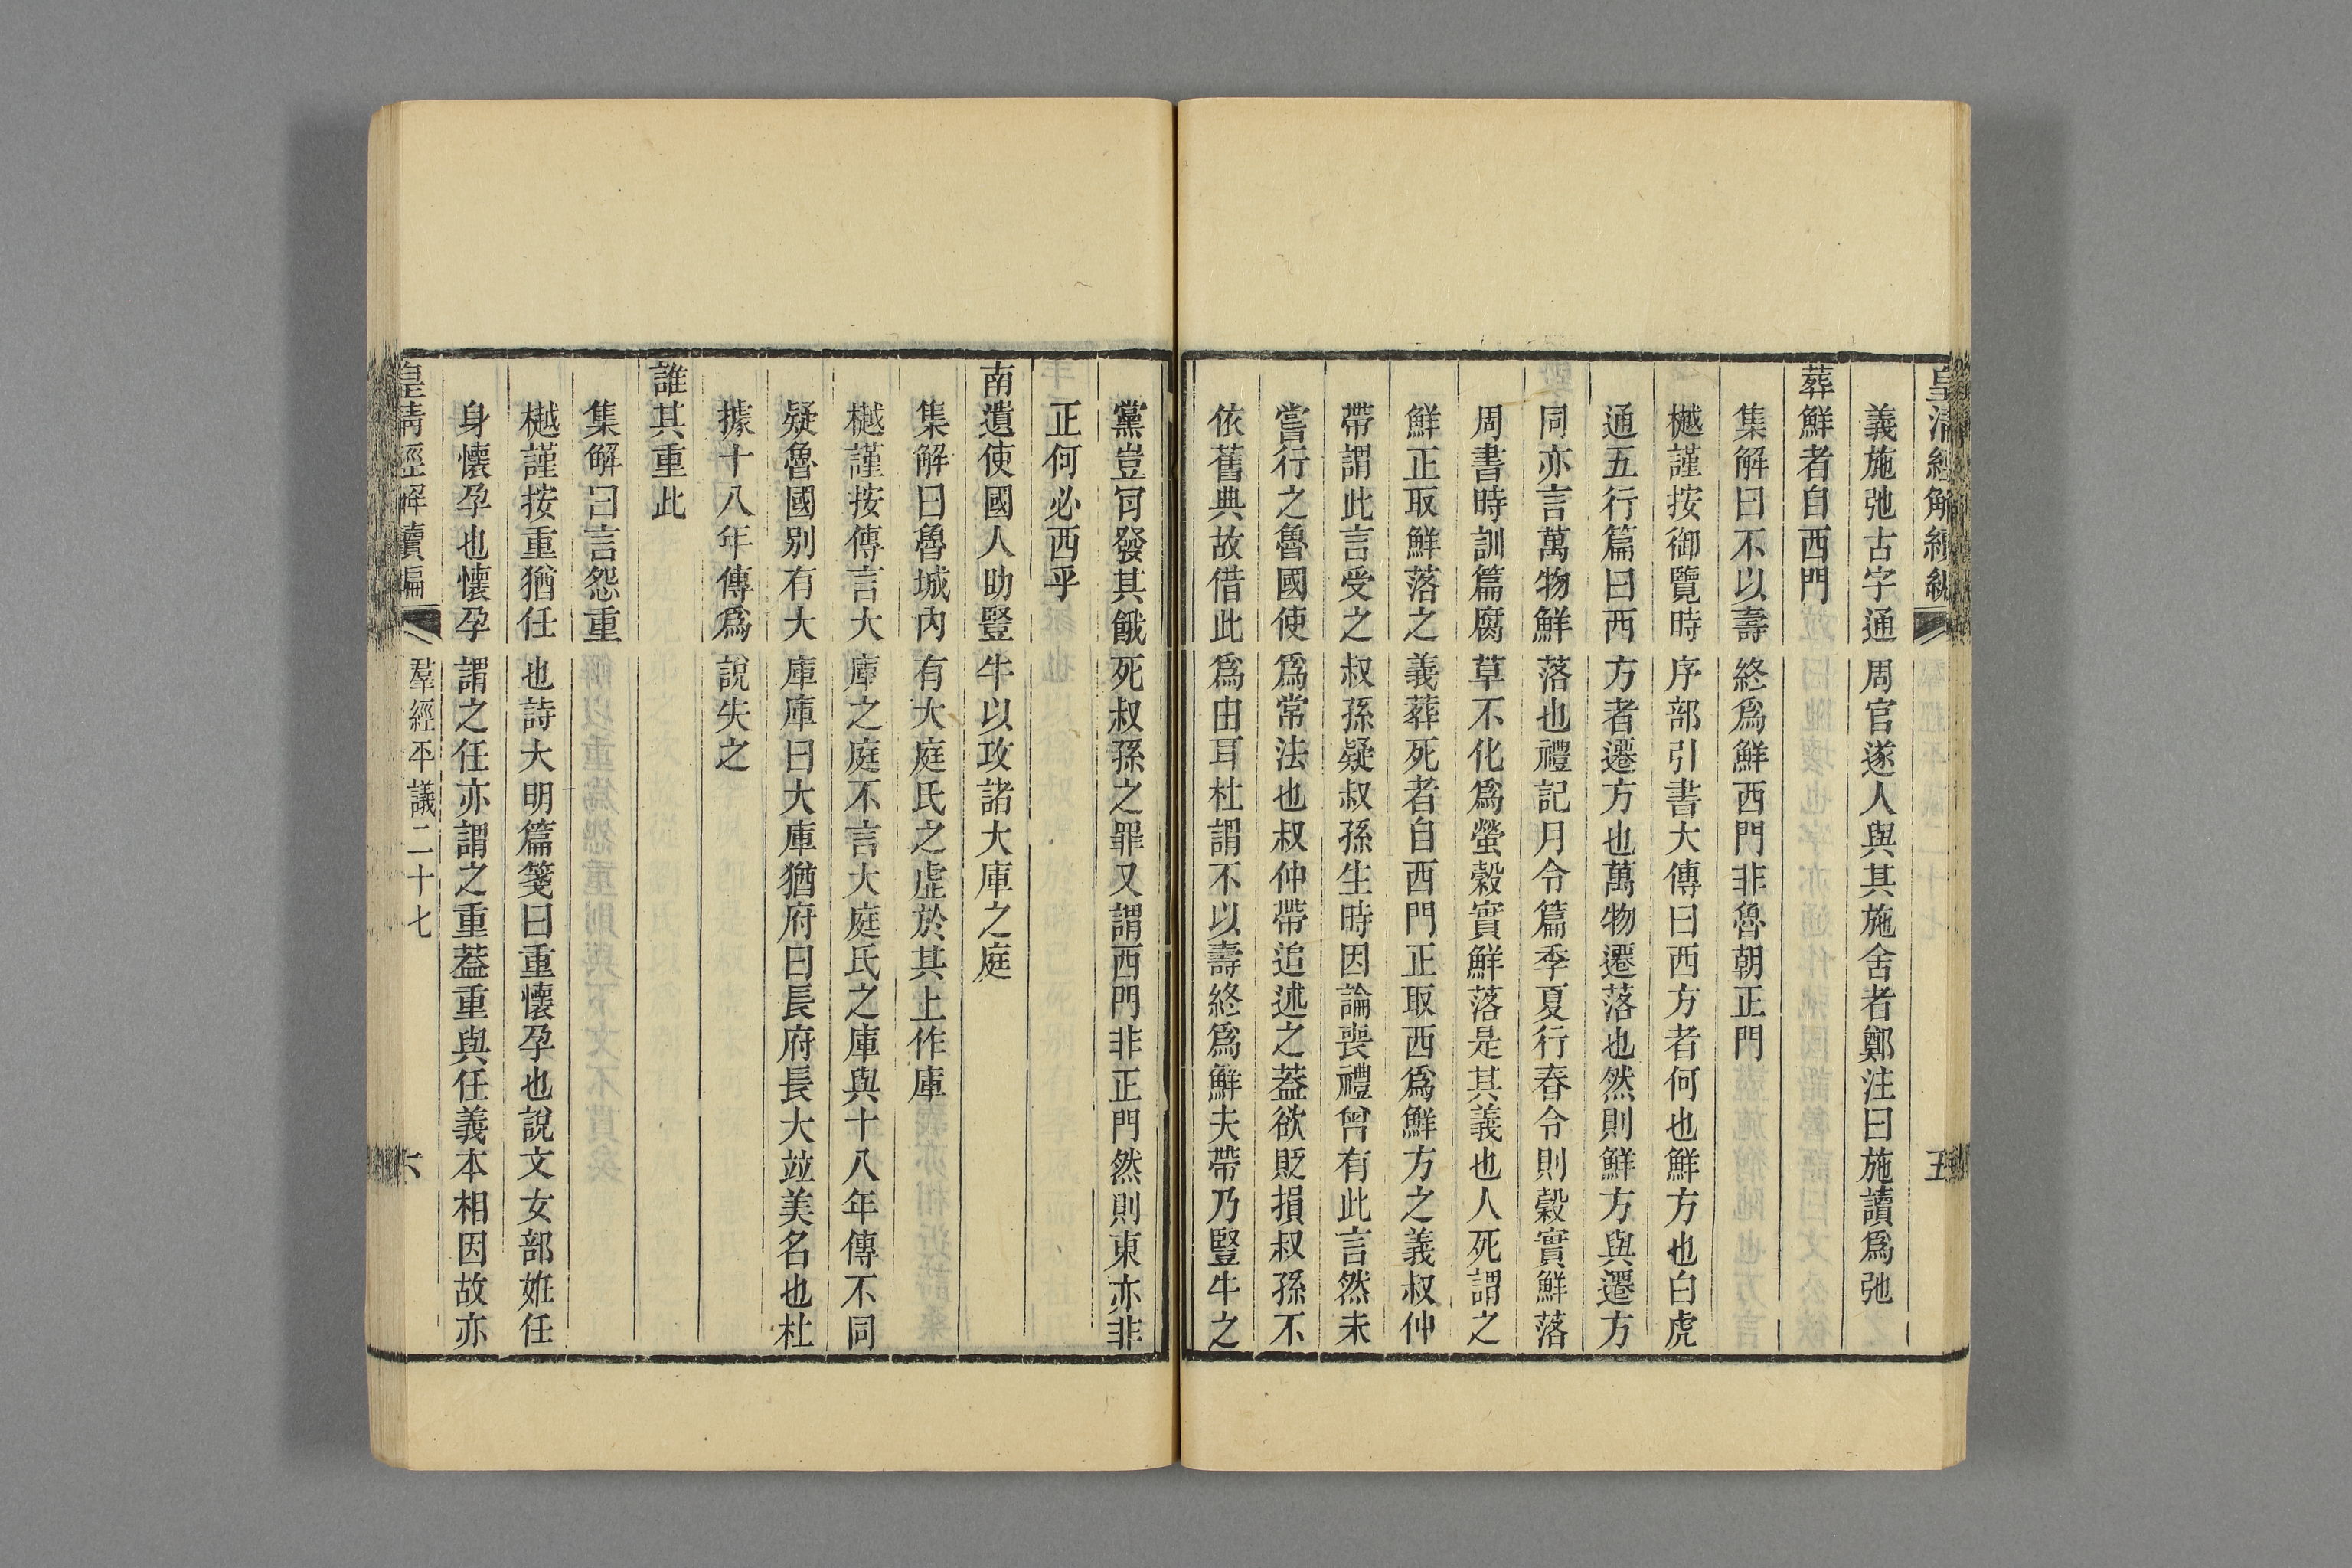 皇清經解續編
五
義施弛古字通周官遂人與其施舍者鄭注曰施讀爲弛
葬鮮者自西門
集解曰不以壽終爲鮮西門非魯朝正門
樾謹按御覽時序部引書大傳曰西方者何也鮮方也白虎
通五行篇曰西方者遷方也萬物遷落也然則鮮方與遷方
同亦言萬物鮮落也禮記月令篇季夏行春令則穀實鮮落
周書時訓篇腐草不化爲螢穀實鮮落是其義也人死謂之
鮮正取鮮落之義葬死者自西門正取西爲鮮方之義叔仲
帶謂此言受之叔孫疑叔孫生時因論喪禮曾有此言然未
嘗行之魯國使爲常法也叔仲帶追述之葢欲貶損叔孫不
依舊典故借此爲由耳杜謂不以壽終爲鮮夫帶乃豎牛之
黨豈肎發其餓死叔孫之罪又謂西門非正門然則東亦非
正何必西乎
南遺使國人助豎牛以攻諸大庫之庭
集解曰魯城內有大庭氏之虛於其上作庫
樾謹按傳言大庫之庭不言大庭氏之庫與十八年傳不同
疑魯國别有大庫庫曰大庫猶府曰長府長大竝美名也杜
據十八年傳爲說失之
誰其重此
集解曰言怨重
樾謹按重猶任也詩大明篇箋曰重懷孕也說文女部姙任
身懷孕也懷孕謂之任亦謂之重葢重與任義本相因故亦
皇清經解續編
羣經平議二十七
六